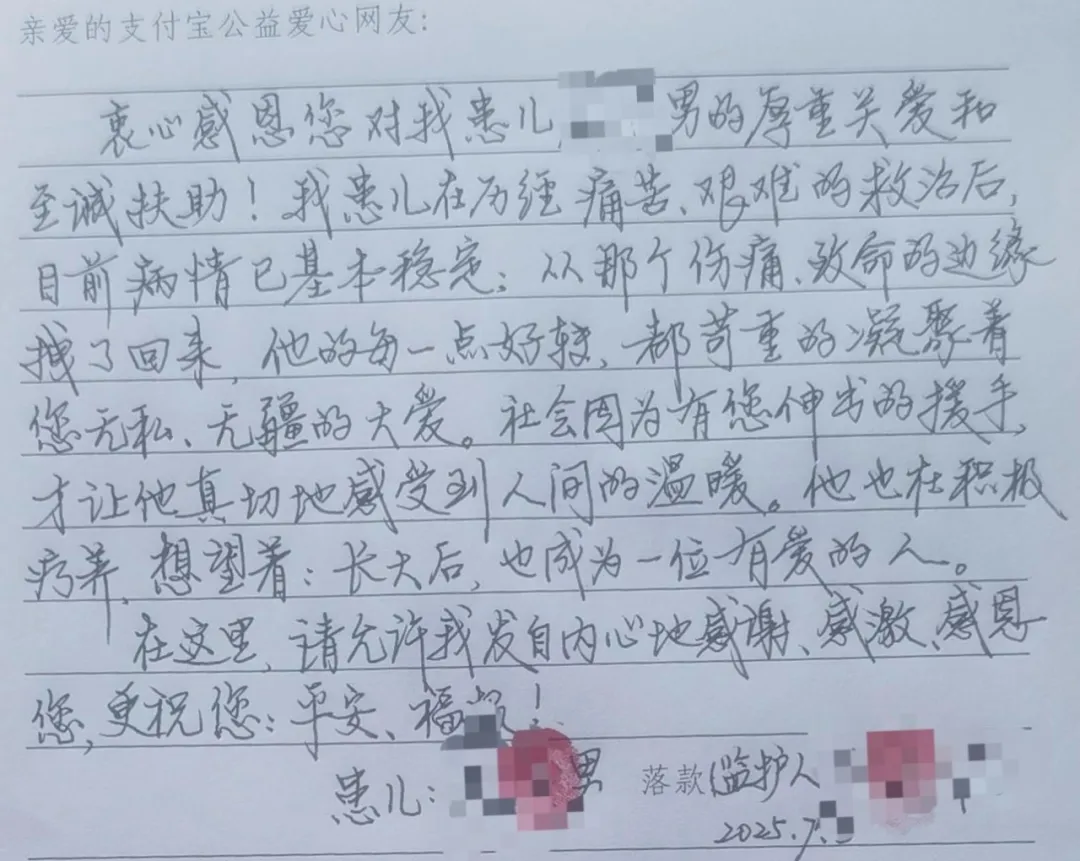 亲爱的支付宝公益爱心网友:
衷心感恩您对我患儿 男的厚重关爱和
至诚扶助！我患儿在历经痛苦、艰难的救治后,
目前病情已基本稳定；从那个伤痛、致命的边缘
拽了回来,他的每一点好转,都苛重的凝聚着
您无私、无疆的大爱。社会因为有您伸出的援手,
才让他真切地感受到人间的温暖。他也在积极
疗养,想望着：长大后,也成为一位有爱的人。
在这里,请允许我发自内心地感谢、感激、感恩
您,更祝您：平安、福 ！
患儿： 男 落款(监护人
2025.7.